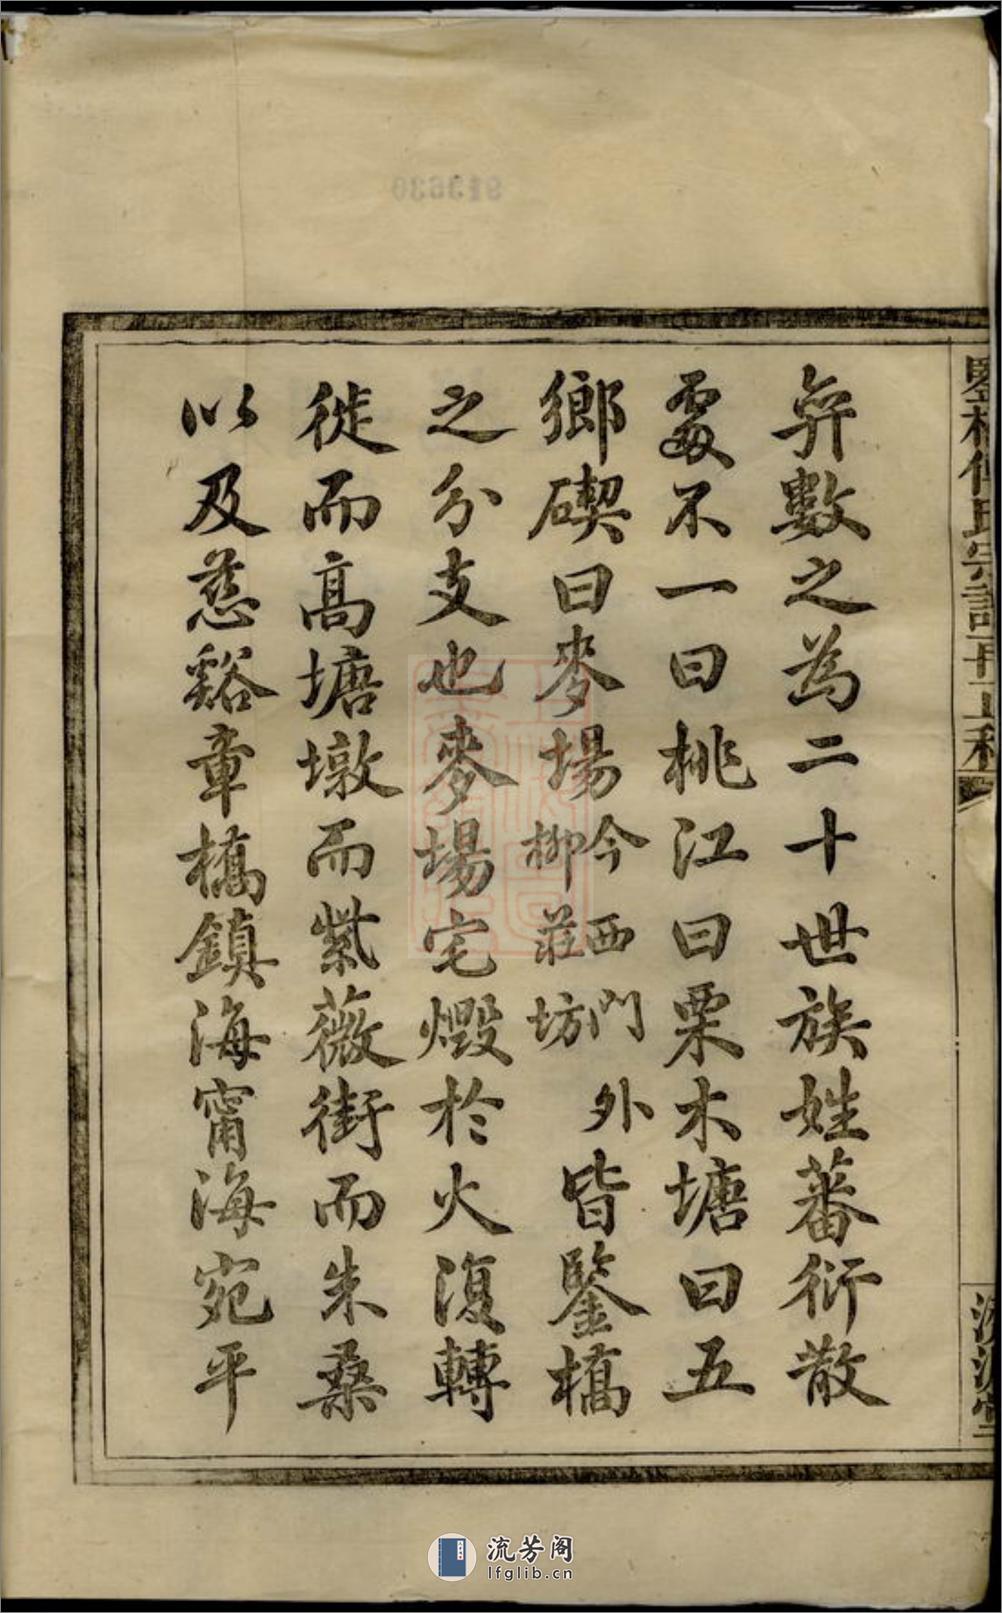 弁數之為二十世族姓蕃衍散
處不一曰桃江曰栗木塘曰五
鄉碶曰麥場今西門外柳莊坊皆鑒橋
之分支也麥場宅燬於火復轉
徙而高塘墩而紫薇街而朱桑
以及慈谿章橋鎮海甯海宛平
氏宗譜
流芳阁
lfglib.cn